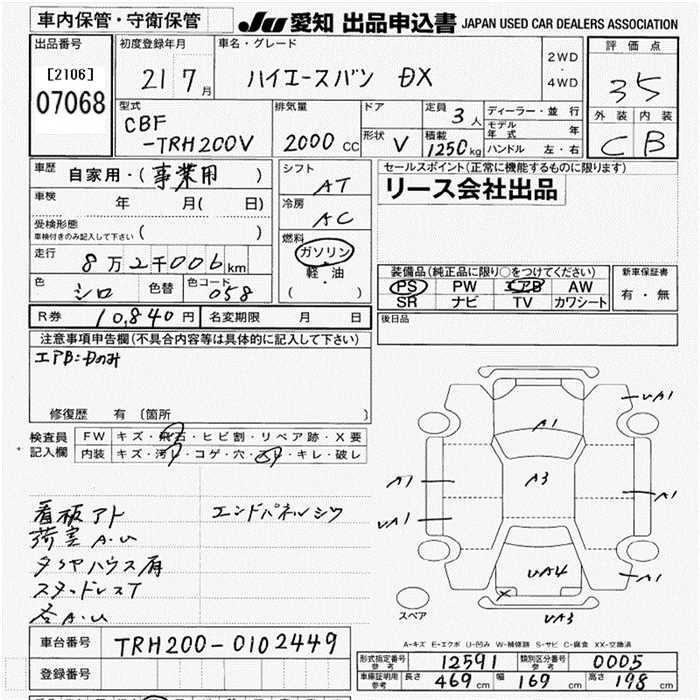 車内保管・守衛保管
JU 愛知 出品申込書 JAPAN USED CAR DEALERS ASSOCIATION
出品番号
[2106]
07068
初度登録年月
21 7 月
車名・グレード
ハイエースバン DX
2WD
・
4WD
評価点
3.5
外装 内装
C B
型式
CBF
-TRH200V
排気量
2000 CC
ドア
形状 V
定員 3 人
積載 1250 kg
ディーラー・並行
モデル年式 年
ハンドル 左・右
車歴 自家用・( 事業用 )
車検 年 月( 日)
受検形態
車検付きのみ記入して下さい ( )
走行 8万2千006 km
色 シロ 色替 色コード 058
シフト
AT
冷房
AC
燃料
ガソリン
・
軽油
( )
セールスポイント(正常に機能するものに限ります)
リース会社出品
装備品(純正品に限り○をつけてください)
PS PW エアB AW
SR ナビ TV カワシート
新車保証書
有・無
R券 10,840 円 名変期限 月 日
後日品
注意事項申告欄(不具合内容等は具体的に記入して下さい)
エアB:Dのみ
修復歴 有 〔箇所 〕
検査員記入欄
FW キズ・飛石・ヒビ割・リペア跡・X要
内装 キズ・汚レ・コゲ・穴・スレ・キレ・破レ
看板アト エンドパネルシワ
荷室A・U
タイヤハウス肩
スタッドレスT
各A・U
UA1
A1
A3
A1
UA1
A1
UA4
X
A1
UA3
スペア
A-キズ E-エクボ U-凹み W-補修跡 S-サビ C-腐食 XX-交換済
車台番号 TRH200-0102449
登録番号
形式指定番号 参考 12591 類別区分番号 参考 0005
車庫証明用 参考 長さ 469 cm 幅 169 cm 高さ 198 cm